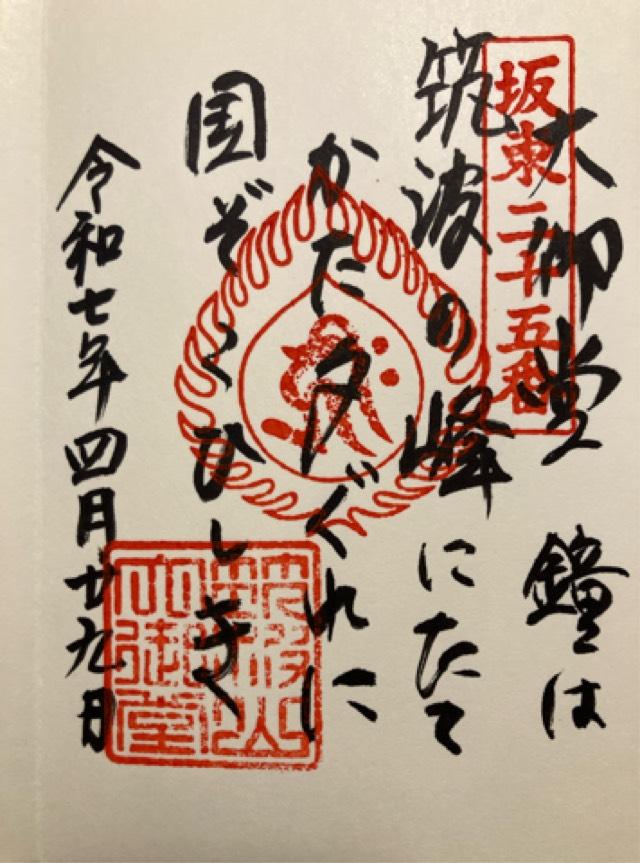 坂東二十五番
大御堂 鐘は
筑波の峰にたて
かた夕ぐれに
国ぞこひしき
令和七年四月廿九日
筑波山
大御堂